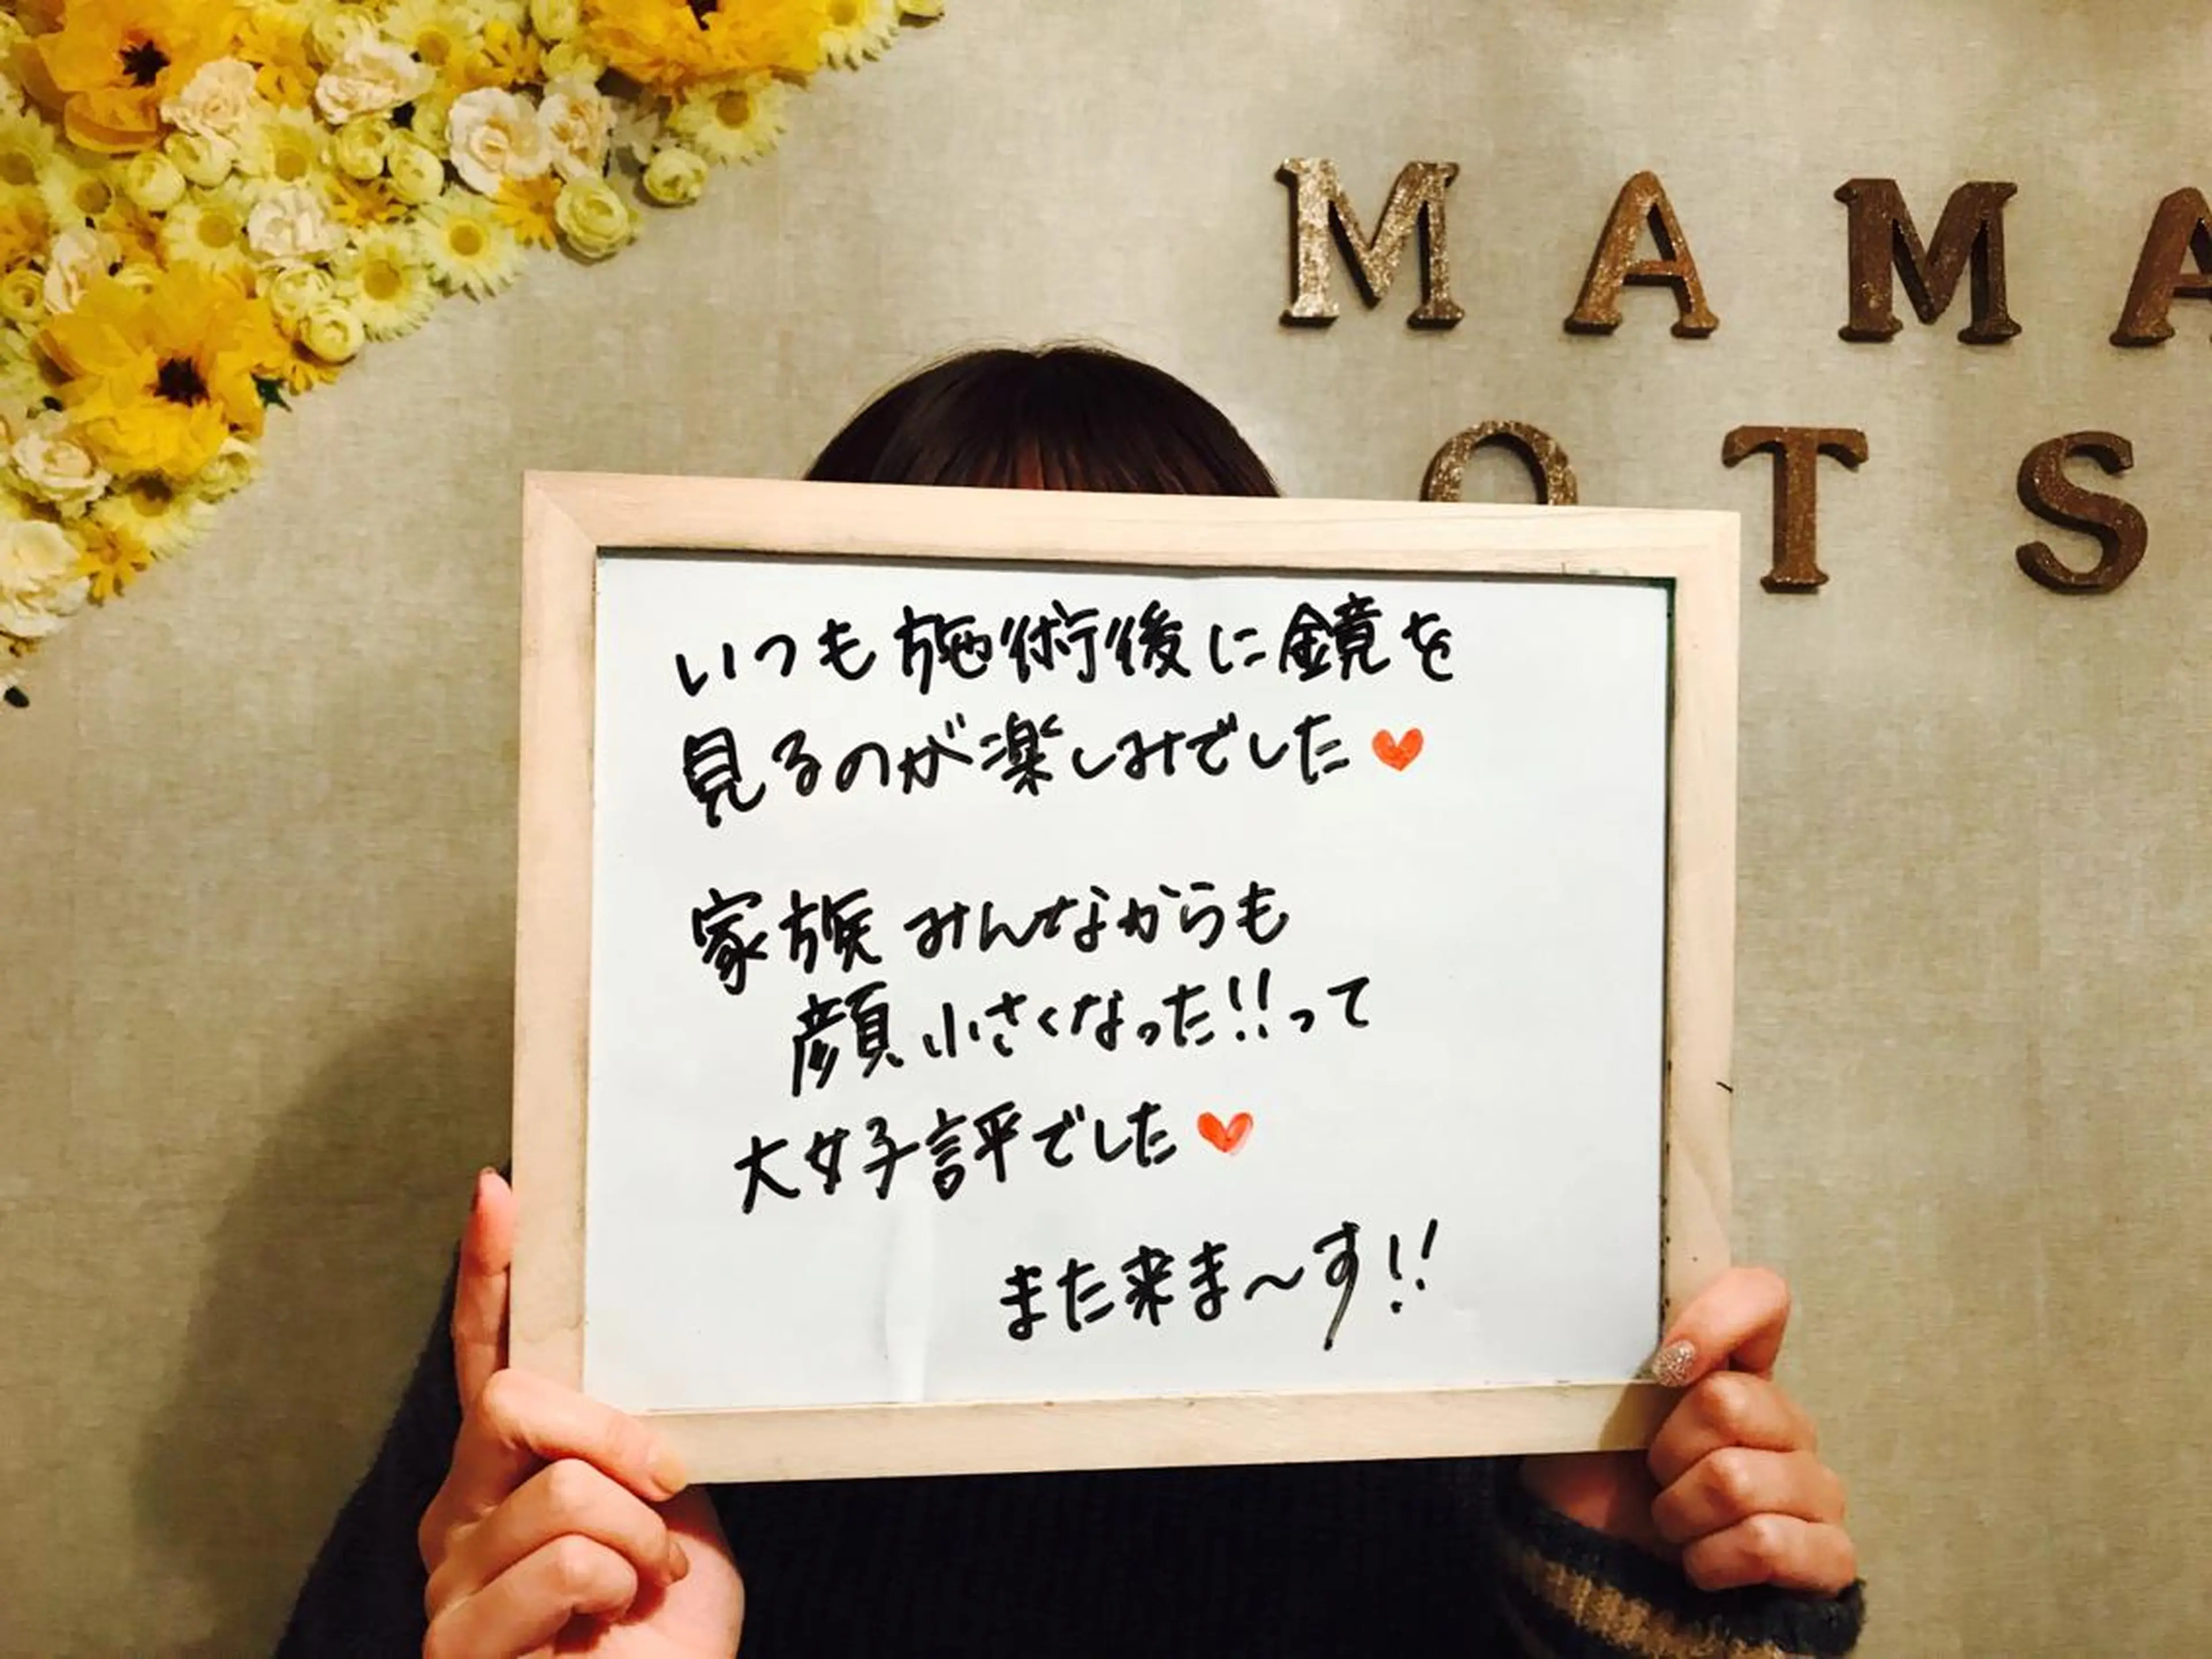 MAMA
OTS
いつも施術後に鏡を
見るのが楽しみでした♥
家族みんなからも
顔小さくなった!!って
大好評でした♥
また来ま〜す!!